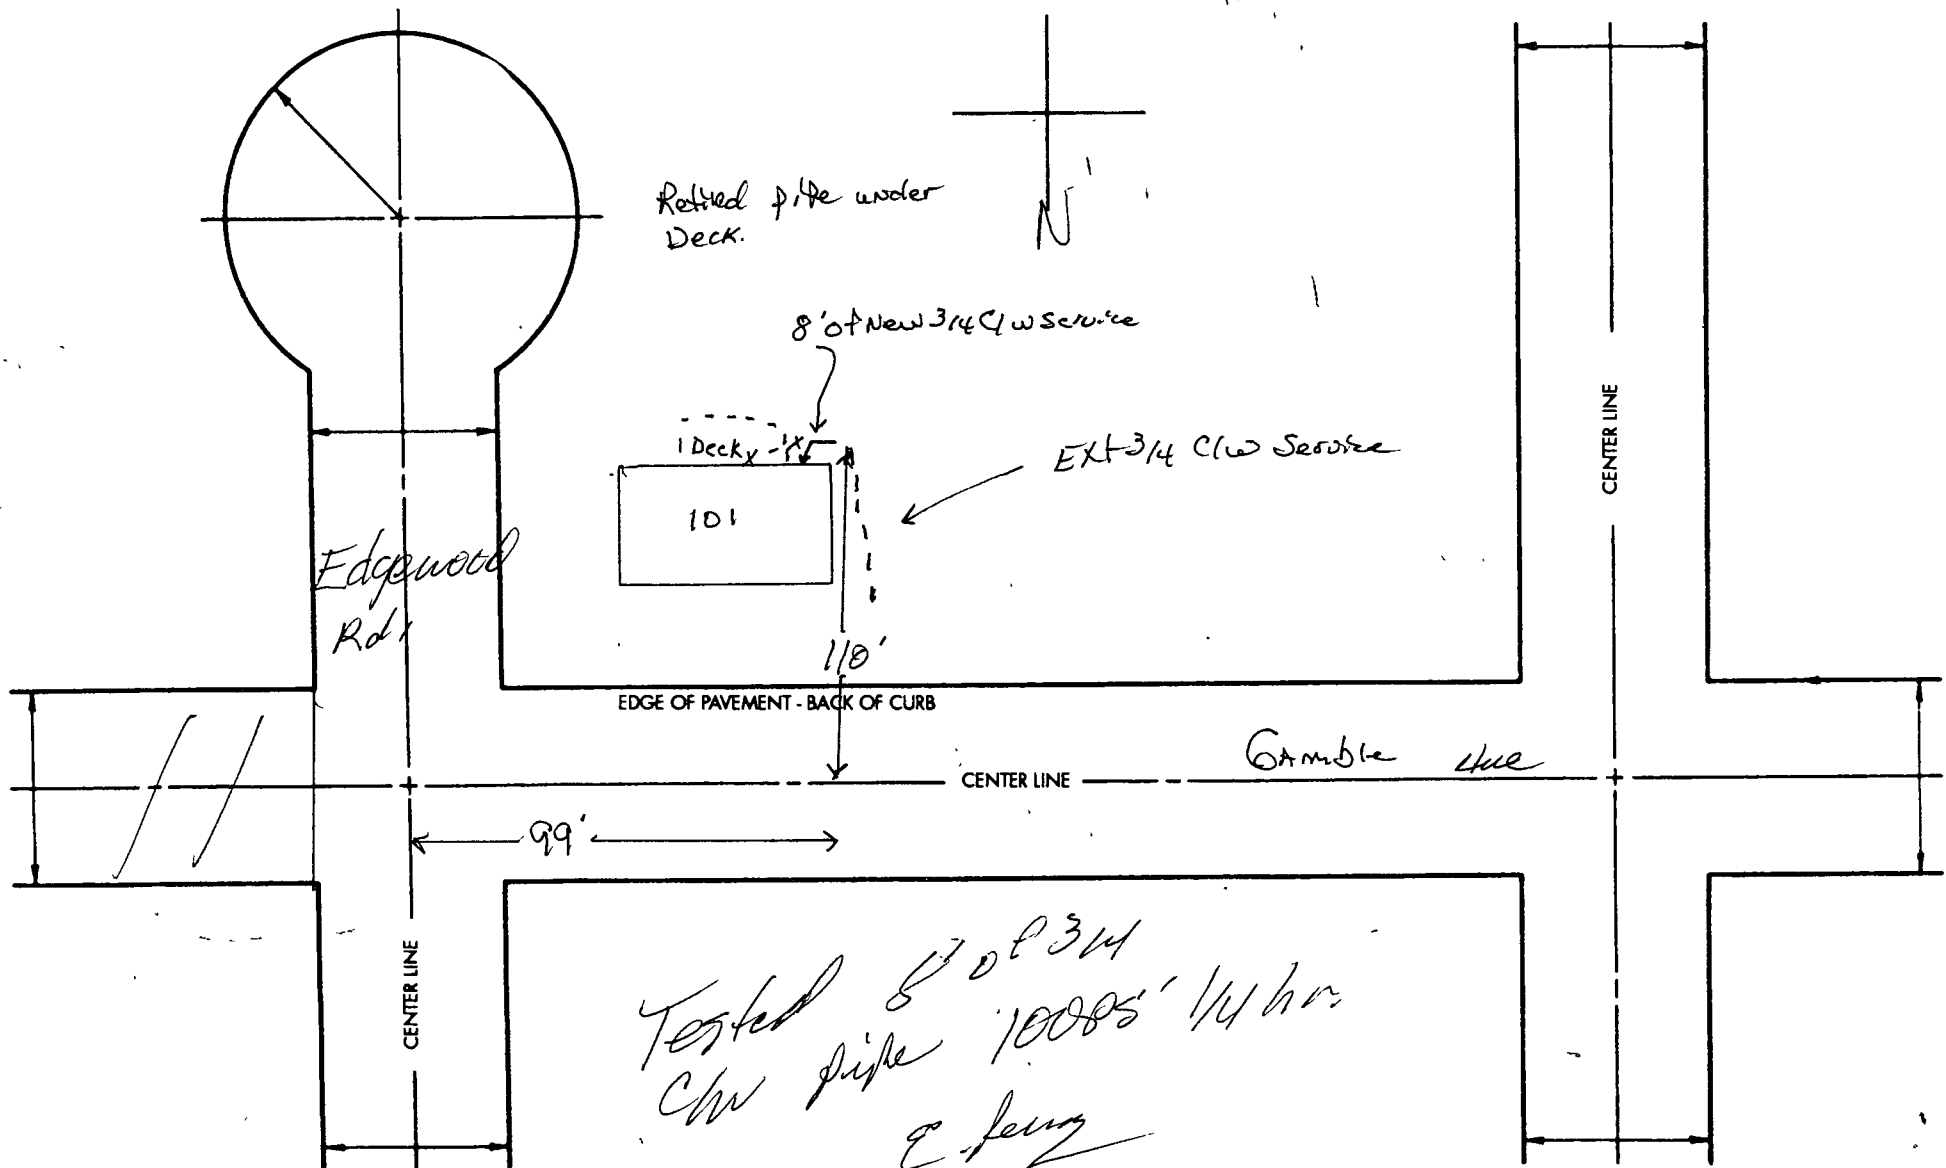 Retired pipe under
Deck.
N
8' of New 3/4 C/W Service
Deck
X
X
Ext 3/4 C/W Service
101
Edgewood
Rd.
110'
EDGE OF PAVEMENT - BACK OF CURB
CENTER LINE
Gamble Ave
CENTER LINE
99'
CENTER LINE
Tested 8' of 3/4
C/W pipe 1/4 hr.
E.